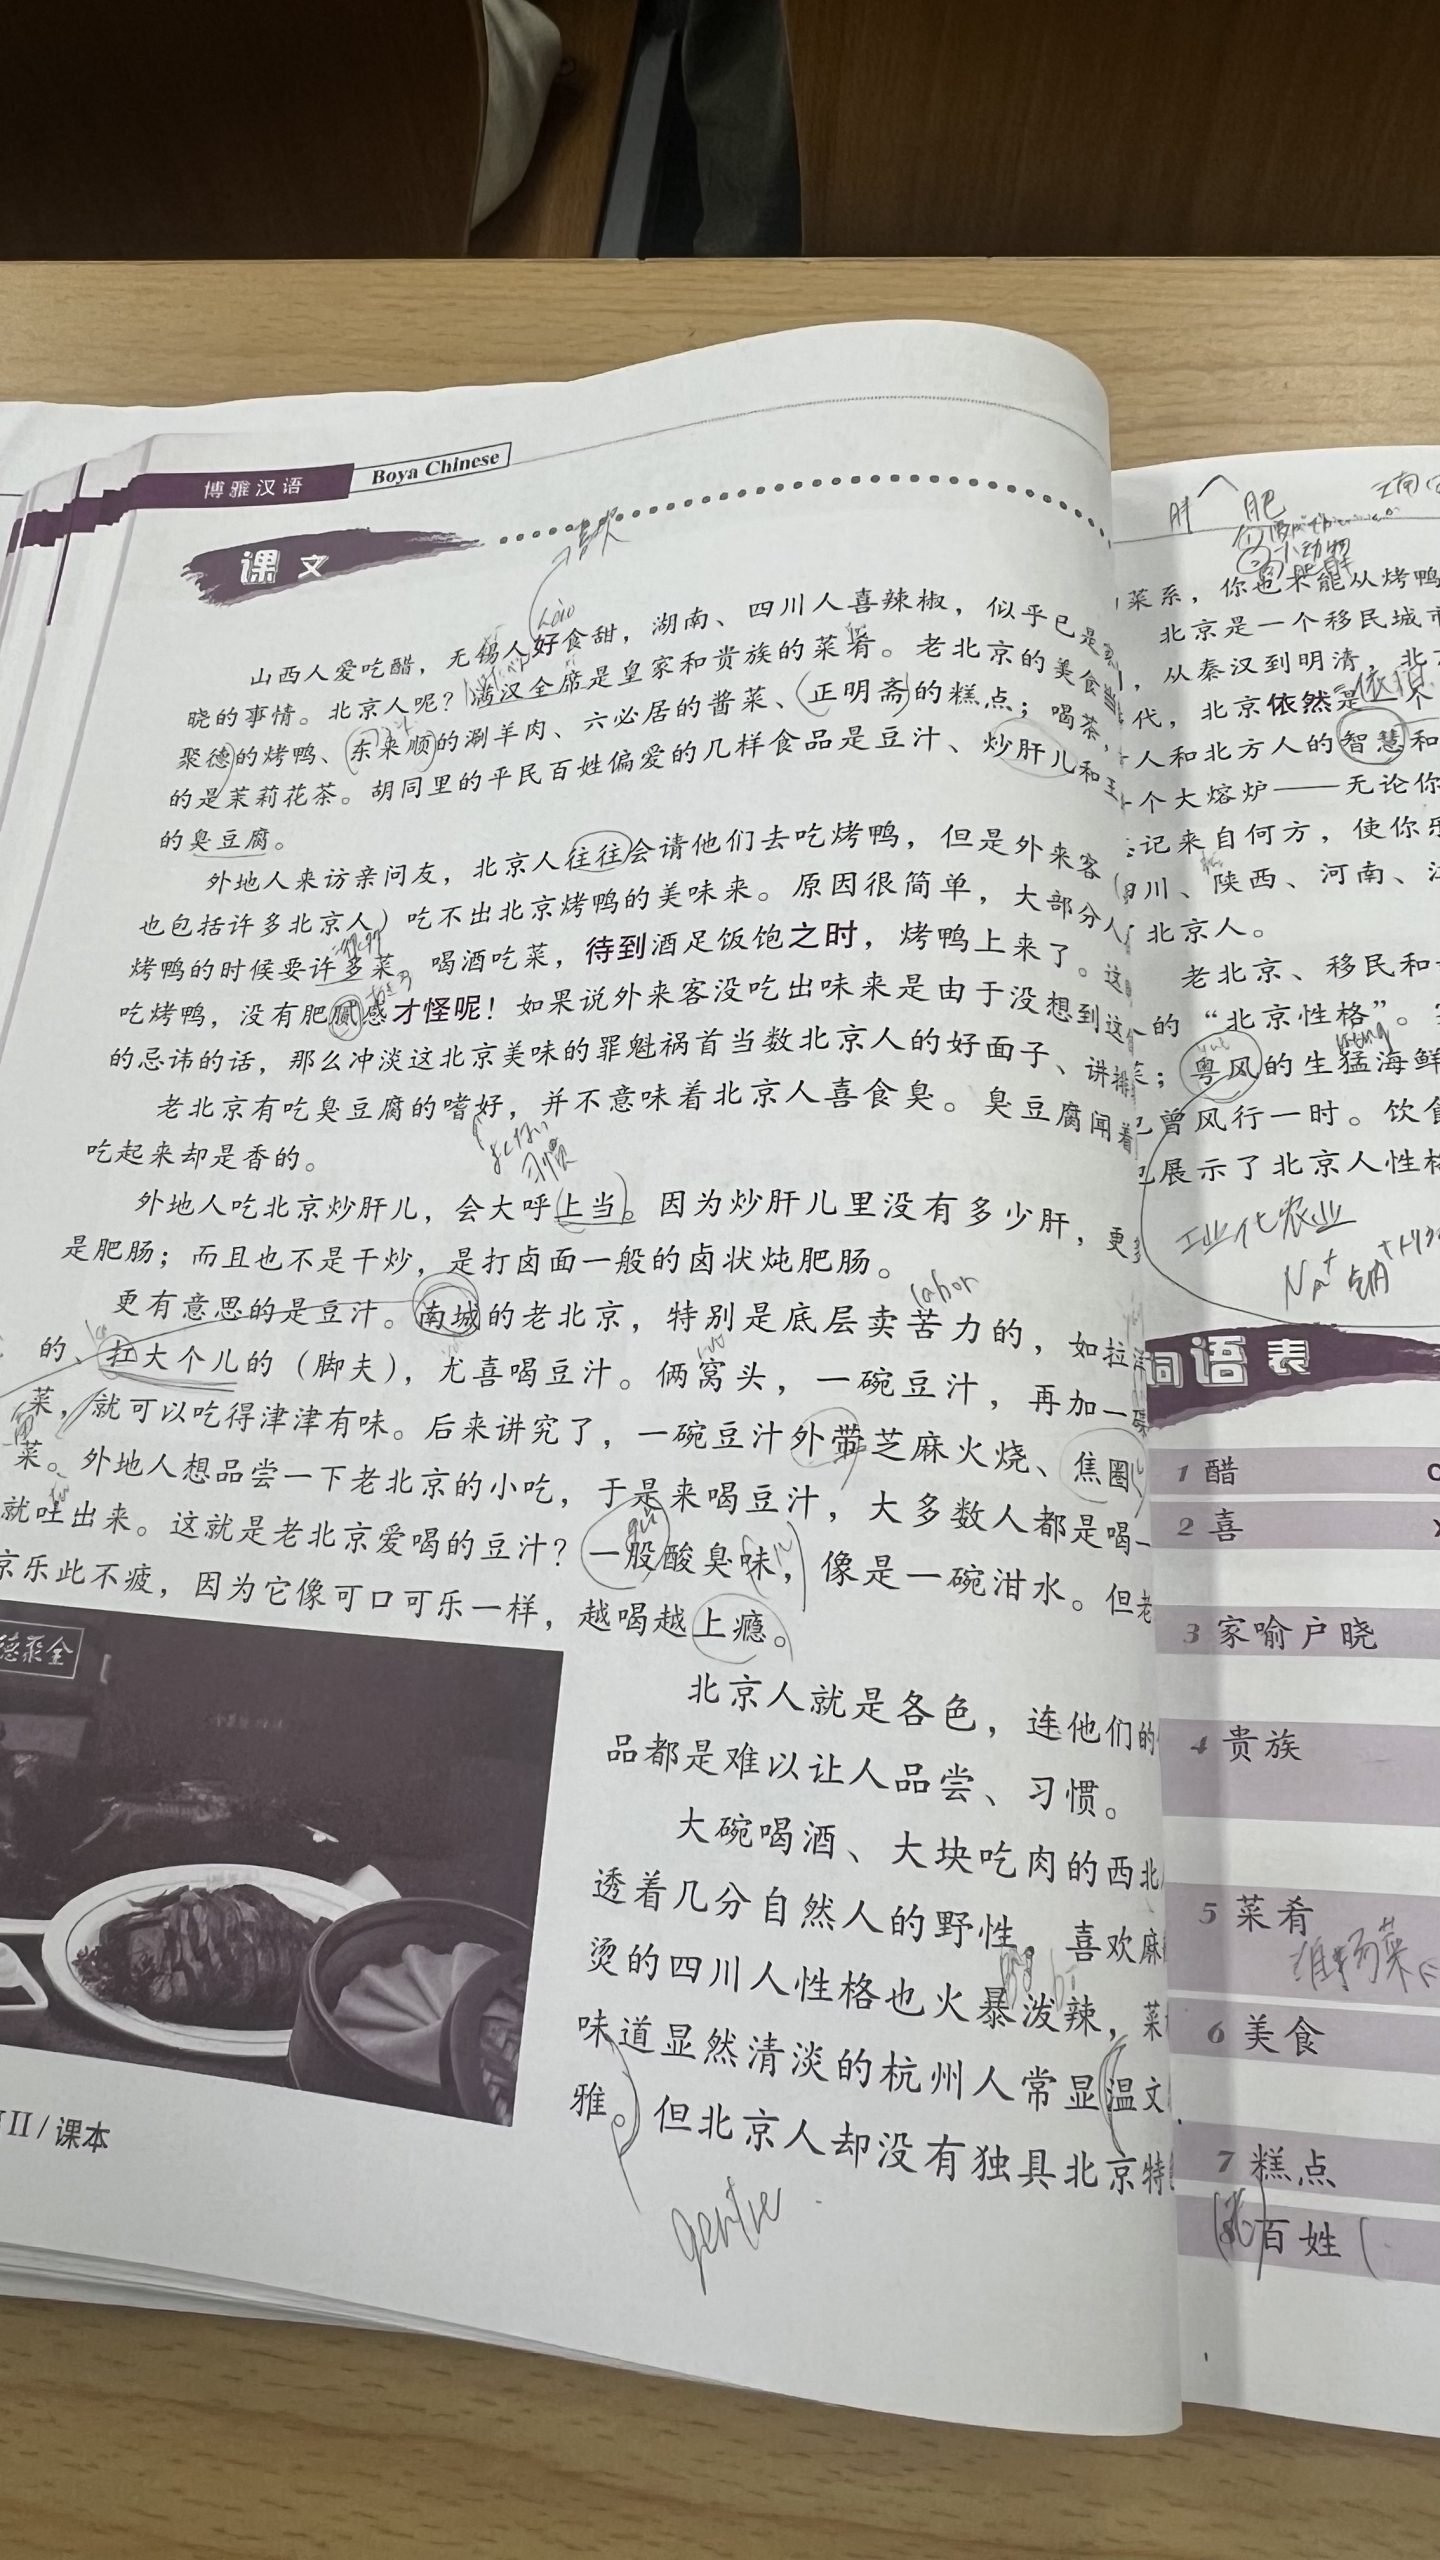 博雅汉语
Boya Chinese
课文
山西人爱吃醋，无锡人好食甜，湖南、四川人喜辣椒，似乎已是
晓的事情。北京人呢？满汉全席是皇家和贵族的菜肴。老北京的美食当
聚德的烤鸭、东来顺的涮羊肉、六必居的酱菜、正明斋的糕点；喝茶，
的是茉莉花茶。胡同里的平民百姓偏爱的几样食品是豆汁、炒肝儿和王
的臭豆腐。
外地人来访亲问友，北京人往往会请他们去吃烤鸭，但是外来客
也包括许多北京人）吃不出北京烤鸭的美味来。原因很简单，大部分人
烤鸭的时候要许多菜，喝酒吃菜，待到酒足饭饱之时，烤鸭上来了。这
吃烤鸭，没有肥腻感才怪呢！如果说外来客没吃出味来是由于没想到这
的忌讳的话，那么冲淡这北京美味的罪魁祸首当数北京人的好面子、讲排
老北京有吃臭豆腐的嗜好，并不意味着北京人喜食臭。臭豆腐闻着
习惯
吃起来却是香的。
外地人吃北京炒肝儿，会大呼上当。因为炒肝儿里没有多少肝，更多
是肥肠；而且也不是干炒，是打卤面一般的卤状炖肥肠。
labor
更有意思的是豆汁。南城的老北京，特别是底层卖苦力的，如拉洋
的、扛大个儿的（脚夫），尤喜喝豆汁。俩窝头，一碗豆汁，再加一碟
菜，就可以吃得津津有味。后来讲究了，一碗豆汁外带芝麻火烧、焦圈
菜。外地人想品尝一下老北京的小吃，于是来喝豆汁，大多数人都是喝一
就吐出来。这就是老北京爱喝的豆汁？一股酸臭味，像是一碗泔水。但老
京乐此不疲，因为它像可口可乐一样，越喝越上瘾。
全聚德
北京人就是各色，连他们的
品都是难以让人品尝、习惯。
大碗喝酒、大块吃肉的西北
透着几分自然人的野性。喜欢麻
烫的四川人性格也火暴泼辣，菜
味道显然清淡的杭州人常显温文
雅。但北京人却没有独具北京特
gentle
II / 课本
肝 肥
小动物
菜系，你也未能从烤鸭
北京是一个移民城市
，从秦汉到明清，北
代，北京依然是一个
人和北方人的智慧和
个大熔炉——无论你
记来自何方，使你乐
川、陕西、河南、江
北京人。
老北京、移民和
的“北京性格”。
；粤风的生猛海鲜
曾风行一时。饮食
展示了北京人性格
工业化农业
Na⁺ 钠
词语表
1 醋
2 喜
3 家喻户晓
4 贵族
5 菜肴
淮扬菜
6 美食
7 糕点
百姓